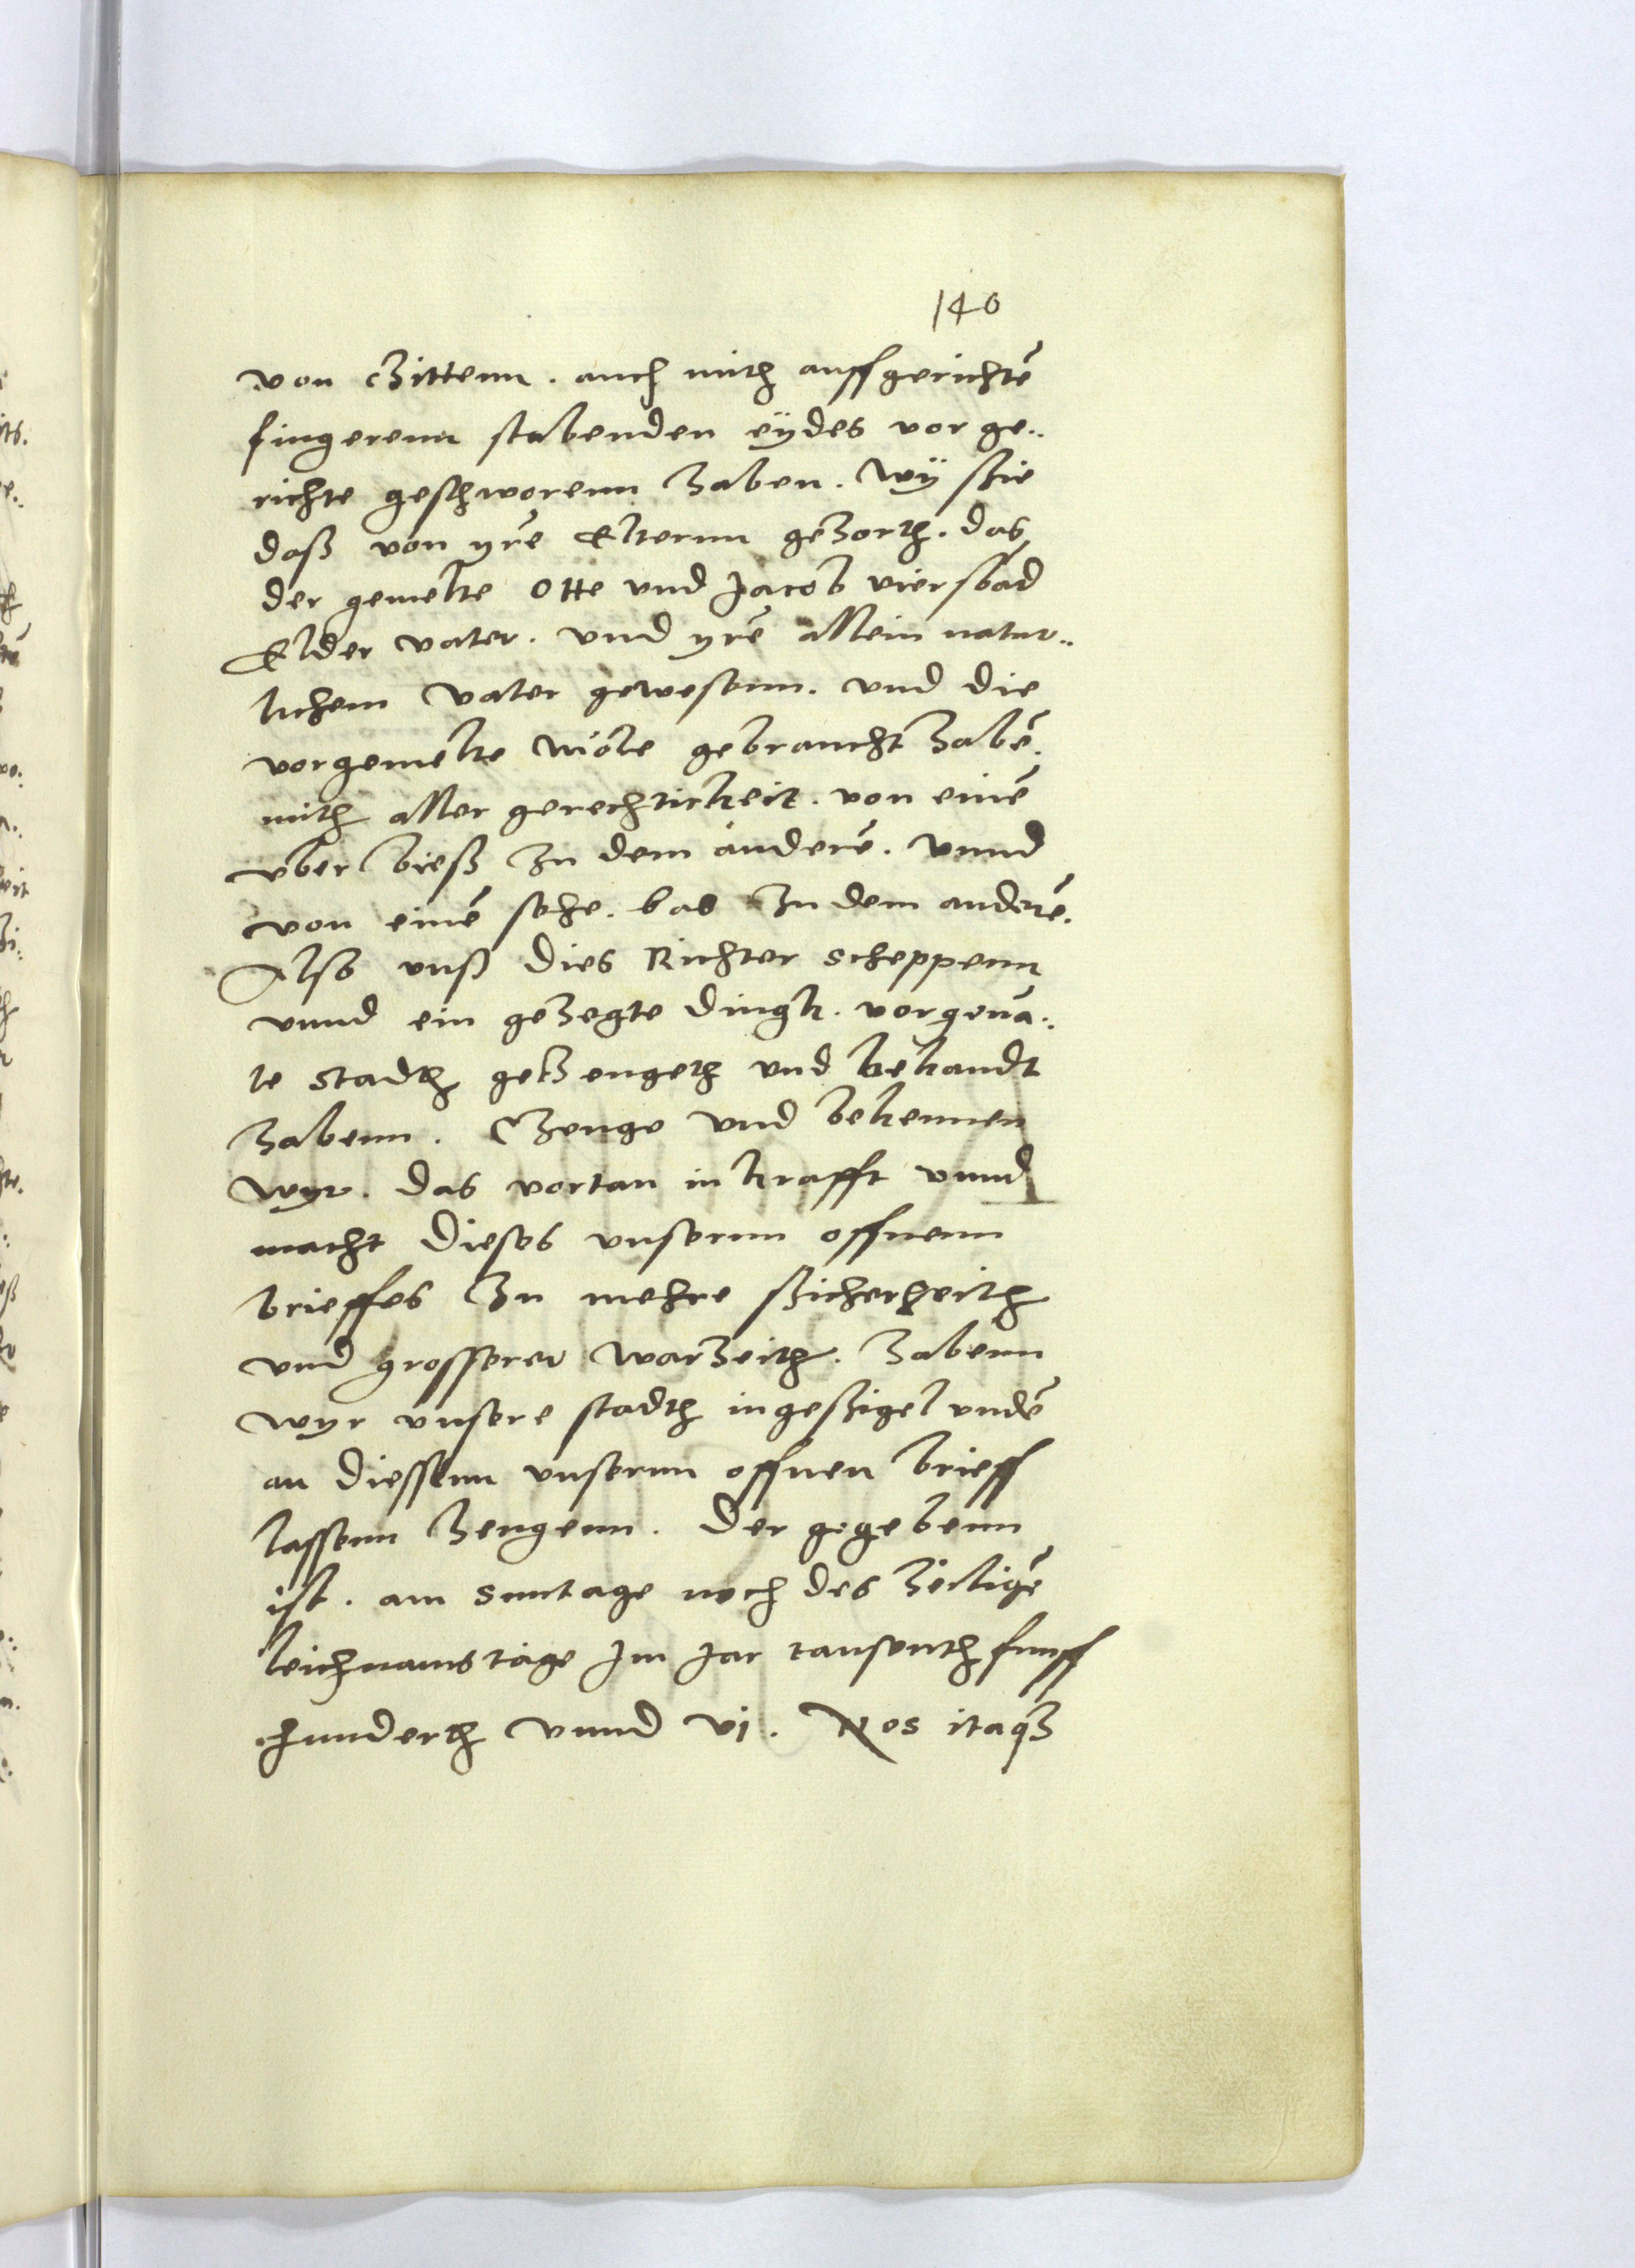 140
von Czittenn . auch mith auffgerichtē
fingerenn stabenden eÿdes vor ge..
richte geschworenn haben . Wÿ ßie
daß von yrē Elternn gehorth . das
der gemelte Otte vnd Jacob viersbad
Elder vater . vnd yrē allein natur..
lichem Vater gewesenn . vnd die
vorgemelte Mole gebraucht habē .
mith aller gerechtickeit . von einē
vber bieß zu dem anderē . Vnnd
von einē sehe . bas zu dem anderē .
Also vnß dies Richter scheppenn
vnnd ein gehegte dingk . vorgena..
te Stadth getzeugeth vnd bekandt
habenn . Czeuge vnd bekennen
wyr . das vortan in krafft vnnd
macht dieses vnsernn offnenn
brieffes zu mehre ßicherheith
vnd grosserer warheith . habenn
wyr vnsere stadth ingeßigel vndē
an diessenn vnsernn offnen brieff
lassenn hengenn . Der gegebenn
ist . am Suntage noch des heiligē
leichnams tage Im Jar tausenth funff
hunderth vnnd vi . Nos itaqꝫ